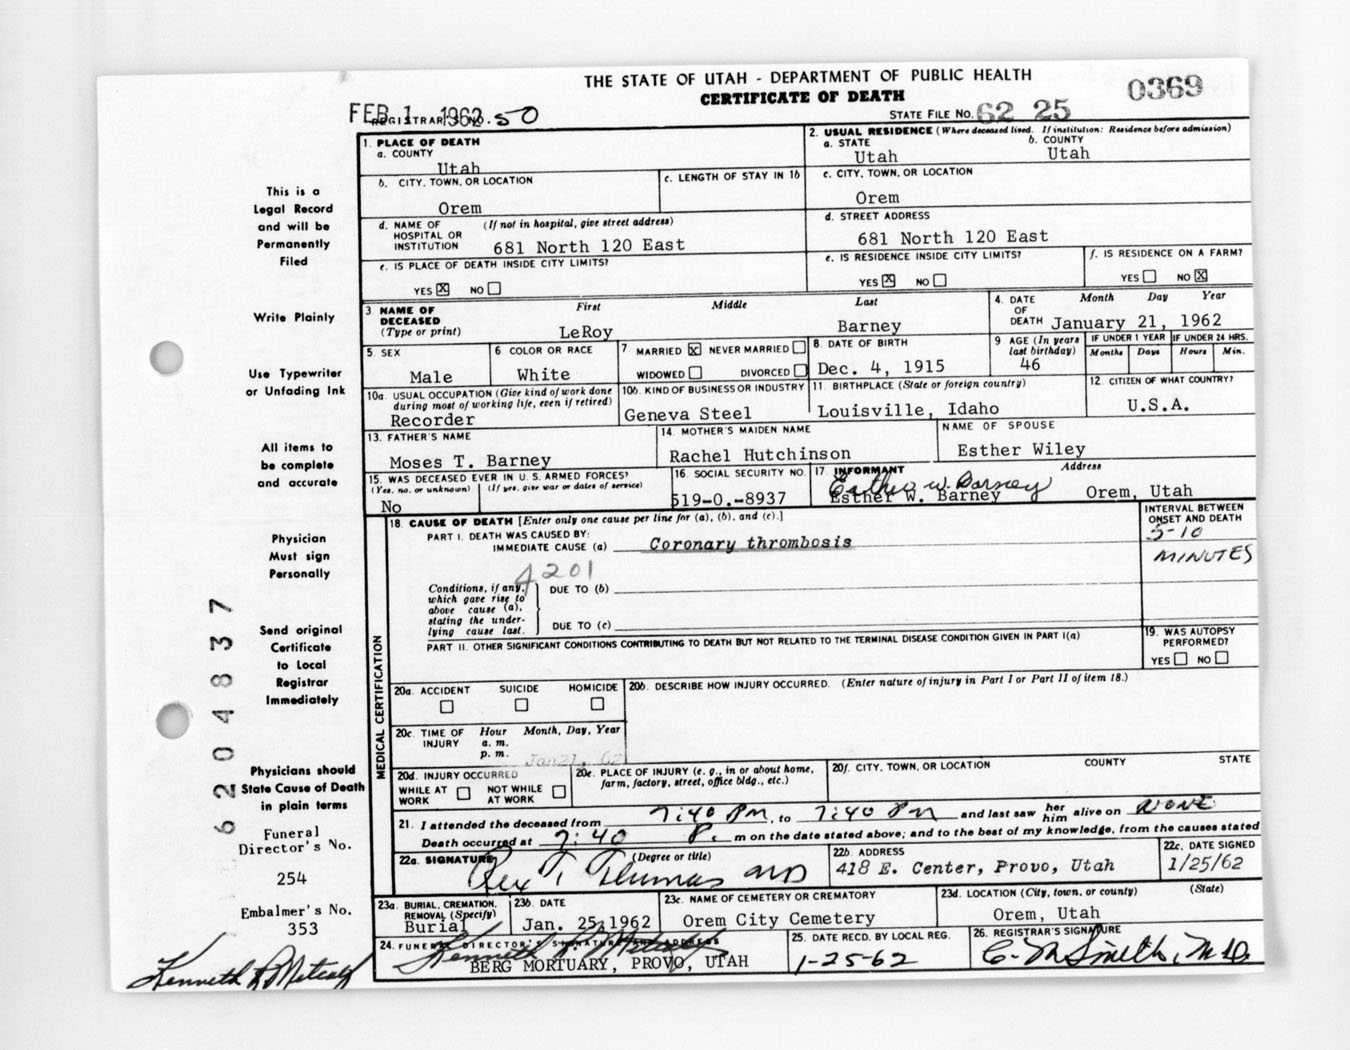 THE STATE OF UTAH - DEPARTMENT OF PUBLIC HEALTH
CERTIFICATE OF DEATH
0369
FEB 1 1962
REGISTRAR'S NO. 50
STATE FILE NO. 62 25
1. PLACE OF DEATH
a. COUNTY
Utah
2. USUAL RESIDENCE (Where deceased lived. If institution: Residence before admission)
a. STATE b. COUNTY
Utah Utah
b. CITY, TOWN, OR LOCATION
Orem
c. LENGTH OF STAY IN 1b
c. CITY, TOWN, OR LOCATION
Orem
d. NAME OF HOSPITAL OR INSTITUTION (If not in hospital, give street address)
681 North 120 East
d. STREET ADDRESS
681 North 120 East
e. IS PLACE OF DEATH INSIDE CITY LIMITS?
YES X NO
e. IS RESIDENCE INSIDE CITY LIMITS?
YES X NO
f. IS RESIDENCE ON A FARM?
YES NO X
3. NAME OF DECEASED (Type or print)
First Middle Last
LeRoy Barney
4. DATE OF DEATH Month Day Year
January 21, 1962
5. SEX
Male
6 COLOR OR RACE
White
7 MARRIED X NEVER MARRIED
WIDOWED DIVORCED
8. DATE OF BIRTH
Dec. 4, 1915
9 AGE (In years last birthday)
46
IF UNDER 1 YEAR
Months Days
IF UNDER 24 HRS.
Hours Min.
10a. USUAL OCCUPATION (Give kind of work done during most of working life, even if retired)
Recorder
10b. KIND OF BUSINESS OR INDUSTRY
Geneva Steel
11. BIRTHPLACE (State or foreign country)
Louisville, Idaho
12. CITIZEN OF WHAT COUNTRY?
U.S.A.
13. FATHER'S NAME
Moses T. Barney
14. MOTHER'S MAIDEN NAME
Rachel Hutchinson
NAME OF SPOUSE
Esther Wiley
15. WAS DECEASED EVER IN U. S. ARMED FORCES?
(Yes, no, or unknown) (If yes, give war or dates of service)
No
16. SOCIAL SECURITY NO.
519-0.-8937
17 INFORMANT Address
Esther W. Barney
Esther W. Barney Orem, Utah
18. CAUSE OF DEATH [Enter only one cause per line for (a), (b), and (c).]
PART I. DEATH WAS CAUSED BY:
IMMEDIATE CAUSE (a) Coronary thrombosis
INTERVAL BETWEEN ONSET AND DEATH
5-10
MINUTES
4201
Conditions, if any, which gave rise to above cause (a), stating the underlying cause last.
DUE TO (b)
DUE TO (c)
PART II. OTHER SIGNIFICANT CONDITIONS CONTRIBUTING TO DEATH BUT NOT RELATED TO THE TERMINAL DISEASE CONDITION GIVEN IN PART I(a)
19. WAS AUTOPSY PERFORMED?
YES NO
MEDICAL CERTIFICATION
20a. ACCIDENT SUICIDE HOMICIDE
20b. DESCRIBE HOW INJURY OCCURRED. (Enter nature of injury in Part I or Part II of item 18.)
20c. TIME OF INJURY Hour Month, Day, Year
a. m.
p. m.
Jan21, 62
20d. INJURY OCCURRED
WHILE AT WORK NOT WHILE AT WORK
20e. PLACE OF INJURY (e. g., in or about home, farm, factory, street, office bldg., etc.)
20f. CITY, TOWN, OR LOCATION COUNTY STATE
21. I attended the deceased from 7:40 Pm, to 7:40 Pm and last saw her him alive on NONE
Death occurred at 7:40 P. m on the date stated above; and to the best of my knowledge, from the causes stated
22a. SIGNATURE (Degree or title)
Rex T. Thomas MD
22b. ADDRESS
418 E. Center, Provo, Utah
22c. DATE SIGNED
1/25/62
23a. BURIAL, CREMATION, REMOVAL (Specify)
Burial
23b. DATE
Jan. 25, 1962
23c. NAME OF CEMETERY OR CREMATORY
Orem City Cemetery
23d. LOCATION (City, town, or county) (State)
Orem, Utah
24. FUNERAL DIRECTOR'S SIGNATURE AND ADDRESS
Kenneth R Metcalf
BERG MORTUARY, PROVO, UTAH
25. DATE RECD. BY LOCAL REG.
1-25-62
26. REGISTRAR'S SIGNATURE
C. M Smith, M.D.
This is a
Legal Record
and will be
Permanently
Filed
Write Plainly
Use Typewriter
or Unfading Ink
All items to
be complete
and accurate
Physician
Must sign
Personally
Send original
Certificate
to Local
Registrar
Immediately
Physicians should
State Cause of Death
in plain terms
Funeral
Director's No.
254
Embalmer's No.
353
Kenneth R Metcalf
6 2 0 4 8 3 7